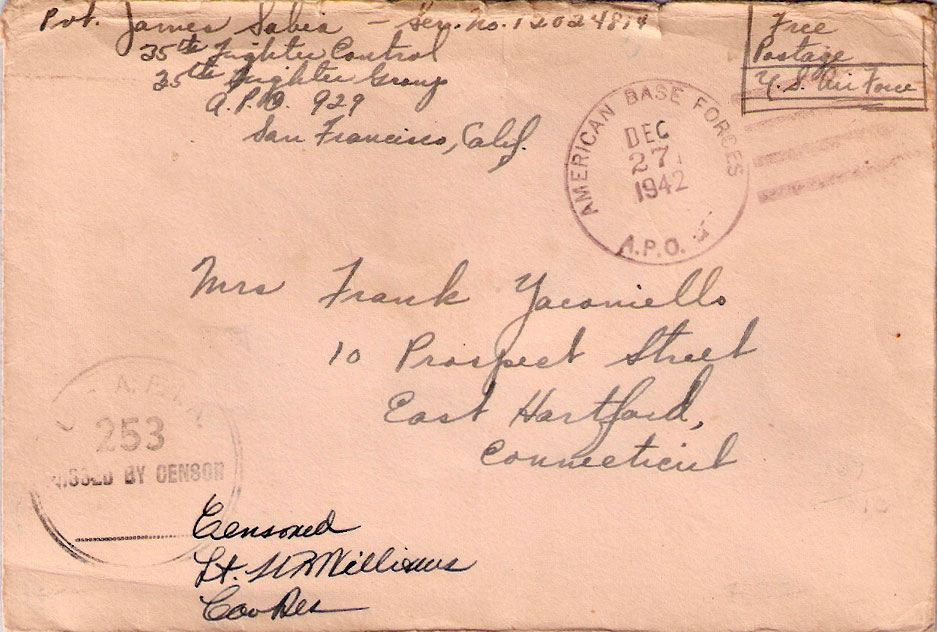 Pvt. James Sabia - Ser. no. 12024814
35th Fighter Control
35th Fighter Group
A.P.O. 929
San Francisco, Calif.
Free
Postage
U.S. Air Force
AMERICAN BASE FORCES
DEC
27
1942
A.P.O.
Mrs Frank Yaconiello
10 Prospect Street
East Hartford,
Connecticut
253
BY CENSOR
Censored
Lt. Williams